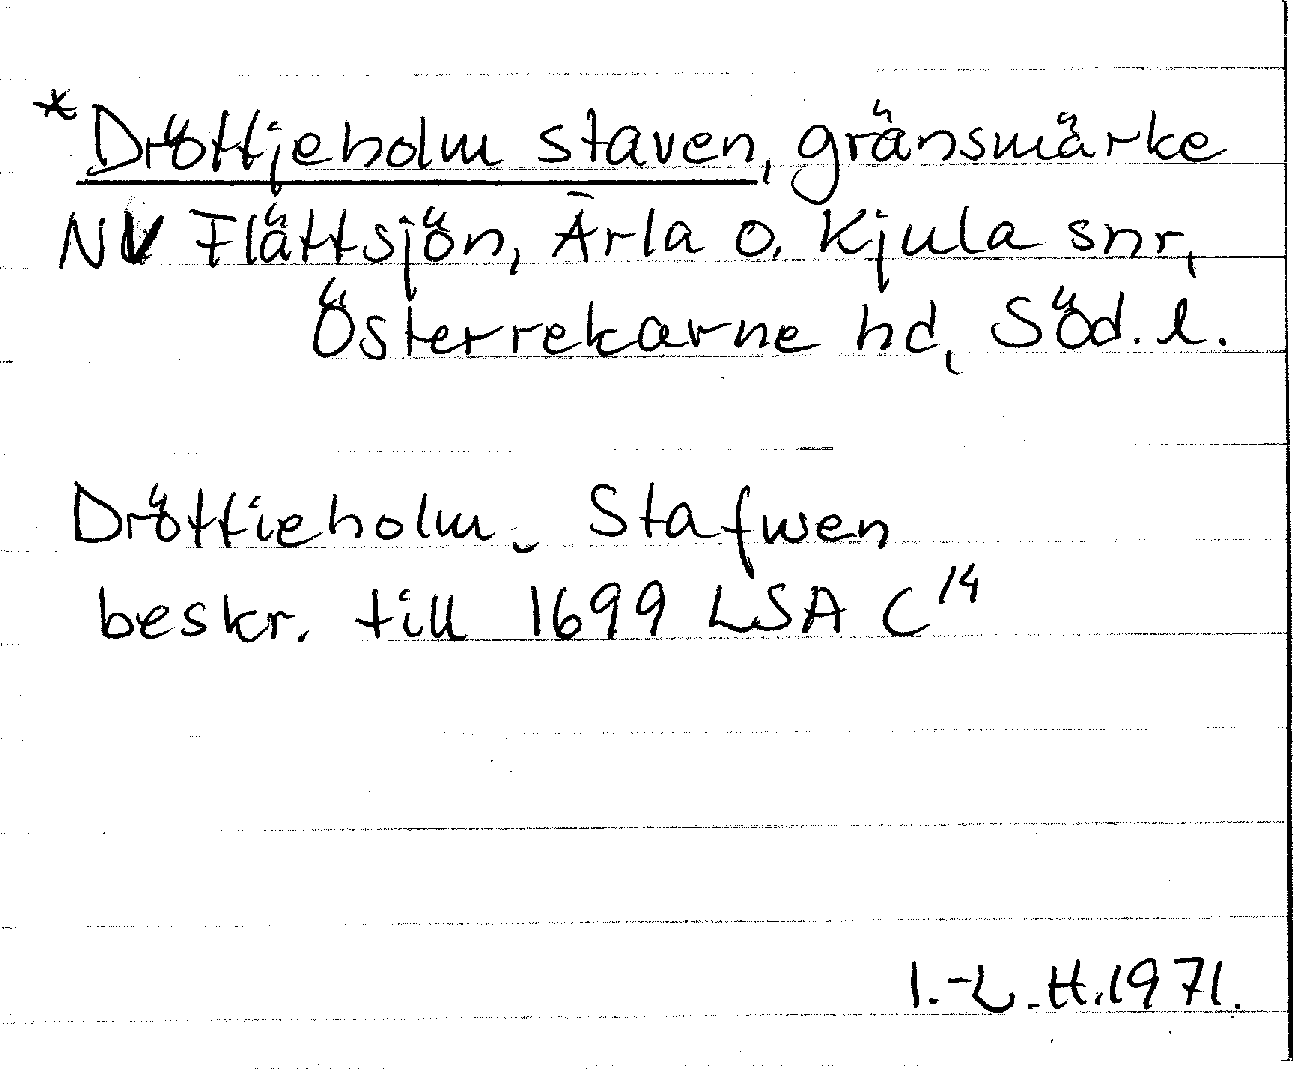 *Dröttjeholm staven, gränsmärke
NV Flättsjön, Ärla o. Kjula snr,
Österrekarne hd, Söd. l.
Dröttieholm⌣ Stafwen
beskr. till 1699 LSA C¹⁴
I.-L. H. 1971.